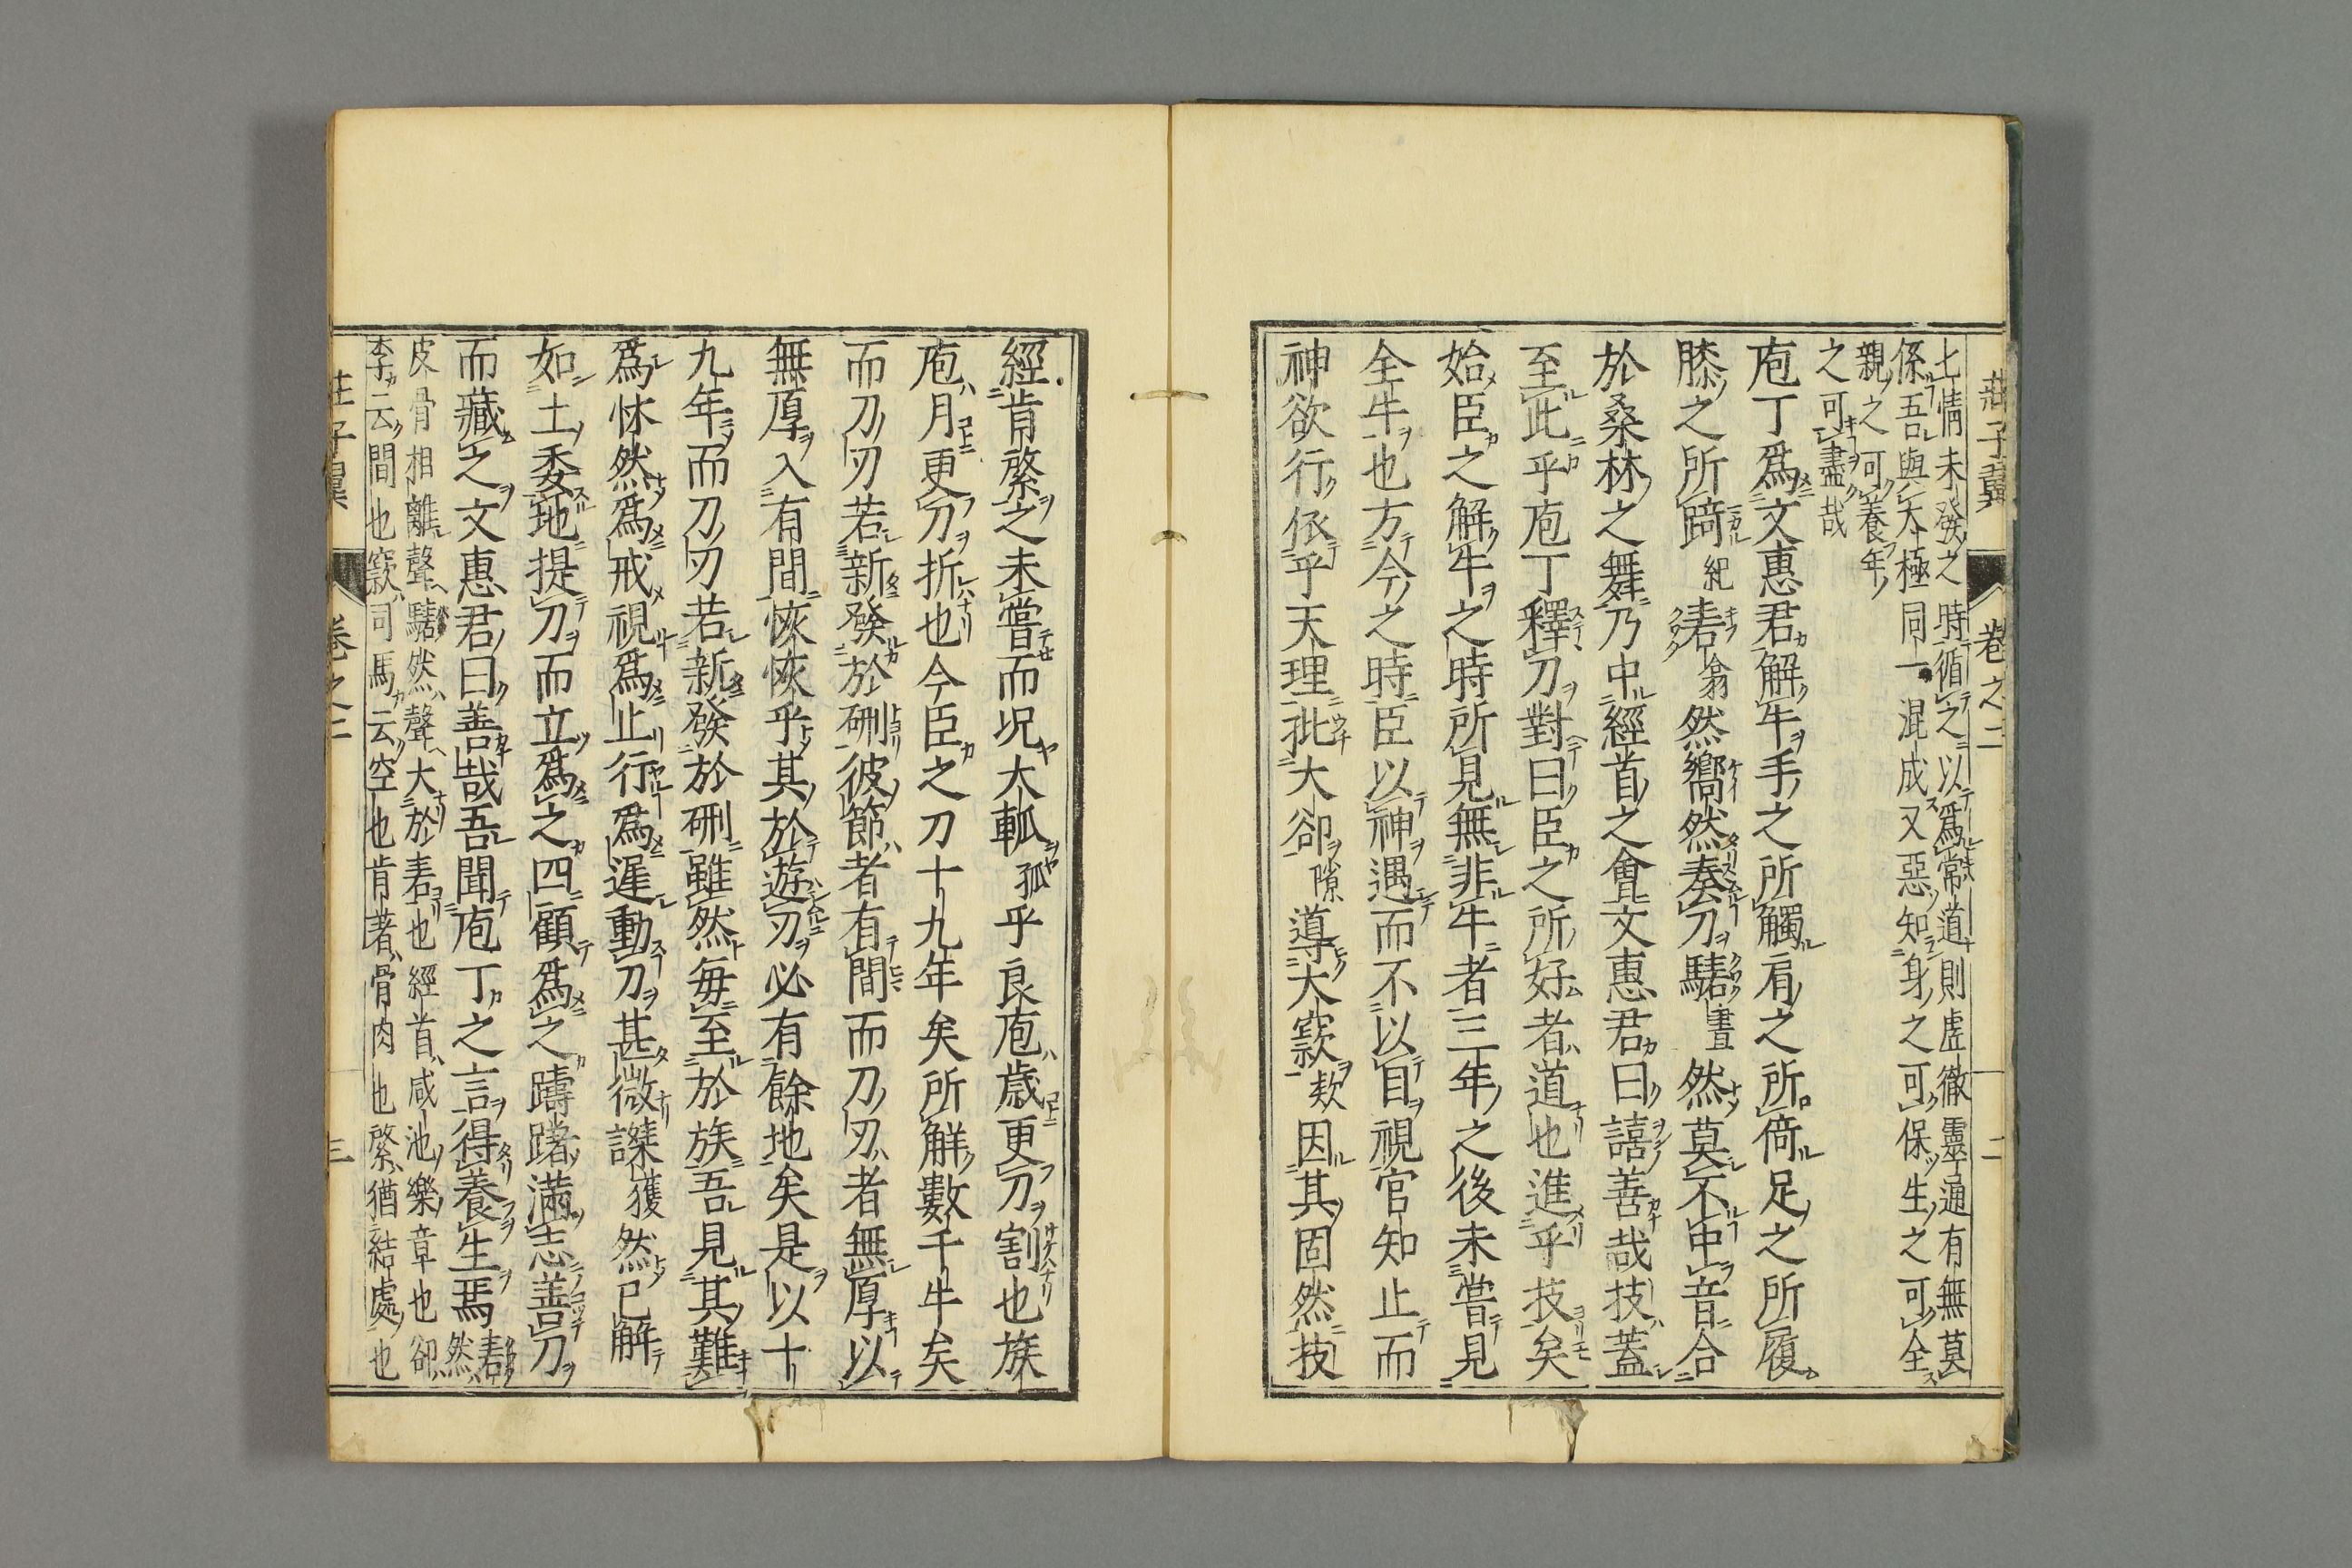 莊子翼 卷之二 二
七情未發之時循之以爲常道則虛徹靈通有無莫
係吾與太極同一混成又惡知身之可保生之可全
親之可養年
之可盡哉
庖丁爲文惠君解牛手之所觸肩之所倚足之所履
膝之所踦紀砉翕然嚮然奏刀騞晝然莫不中音合
於桑林之舞乃中經首之會文惠君曰譆善哉技蓋
至此乎庖丁釋刀對曰臣之所好者道也進乎技矣
始臣之解牛之時所見無非牛者三年之後未嘗見
全牛也方今之時臣以神遇而不以目視官知止而
神欲行依乎天理批大卻隙導大窾欵因其固然技
經肯綮之未嘗而況大軱孤乎良庖歲更刀割也族
庖月更刀折也今臣之刀十九年矣所解數千牛矣
而刀刃若新發於硎彼節者有間而刀刃者無厚以
無厚入有間恢恢乎其於遊刃必有餘地矣是以十
九年而刀刃若新發於硎雖然每至於族吾見其難
爲怵然爲戒視爲止行爲遲動刀甚微謋獲然已解
如土委地提刀而立爲之四顧爲之躊躇滿志善刀
而藏之文惠君曰善哉吾聞庖丁之言得養生焉砉然
皮骨相離聲騞然聲大於砉也經首咸池樂章也卻
李云間也窾同馬云空也肯著骨肉也綮猶結處也
莊子翼 卷之二 三